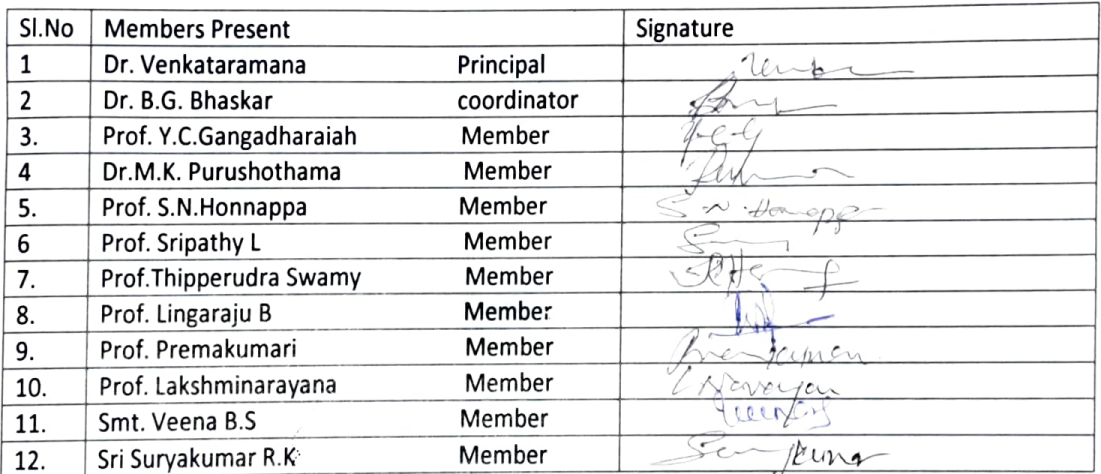 Sl.No Members Present Signature
1 Dr. Venkataramana Principal
2 Dr. B.G. Bhaskar coordinator
3. Prof. Y.C.Gangadharaiah Member Y-C-G
4 Dr.M.K. Purushothama Member
5. Prof. S.N.Honnappa Member S.N.Honnappa
6 Prof. Sripathy L Member
7. Prof.Thipperudra Swamy Member
8. Prof. Lingaraju B Member
9. Prof. Premakumari Member
10. Prof. Lakshminarayana Member
11. Smt. Veena B.S Member
12. Sri Suryakumar R.K Member